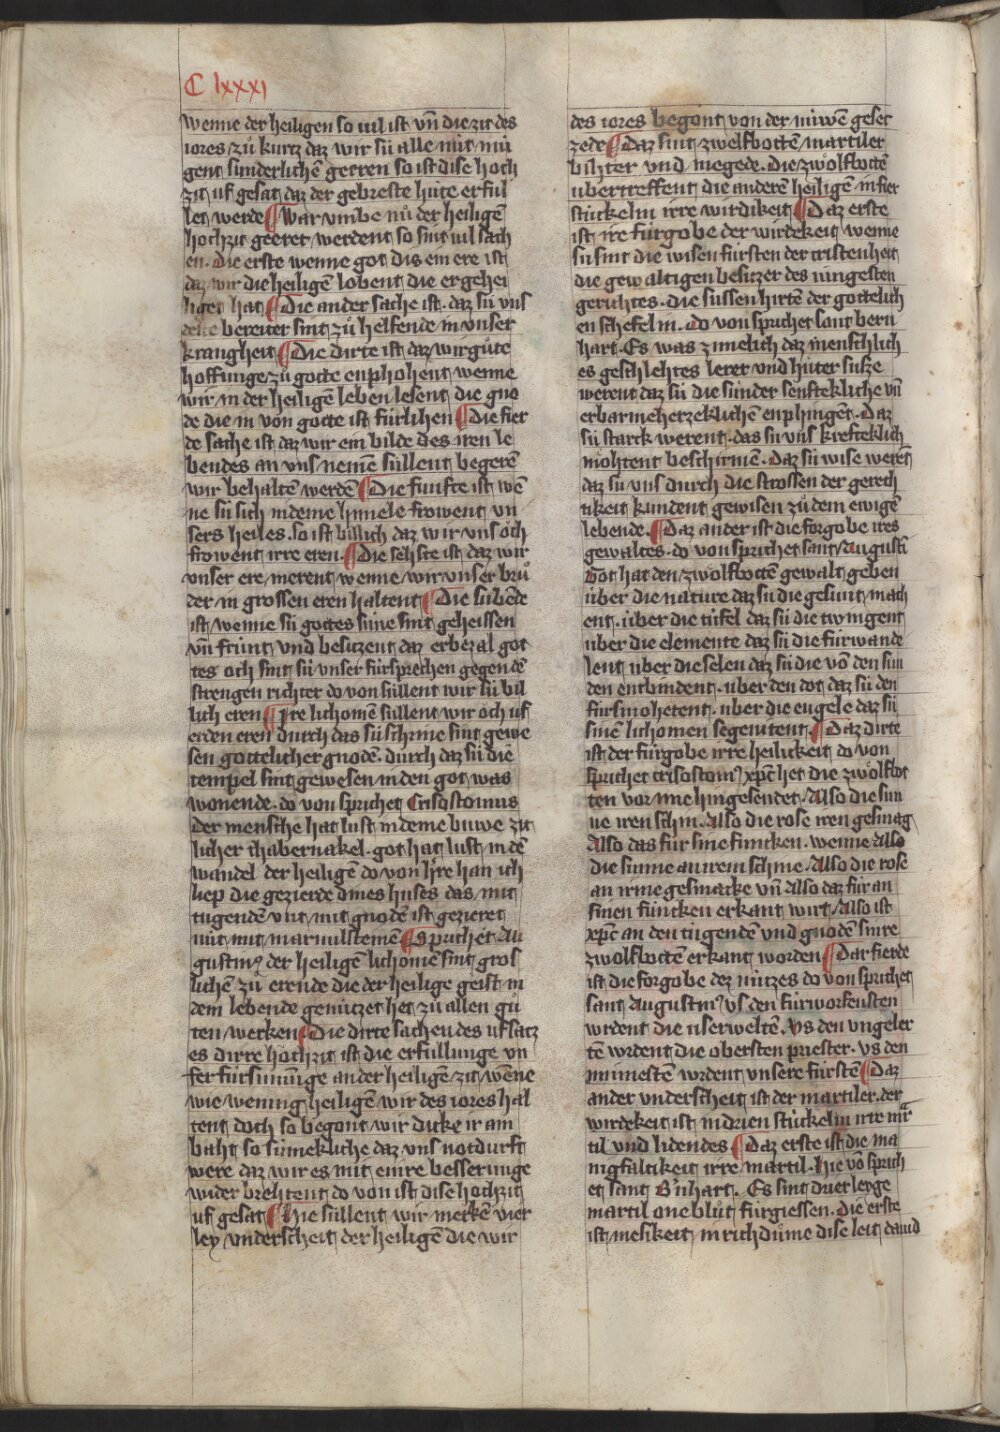 C lxxxi
wenne der heiligen so uil ist vn̄ die zit des
iores zů kurtz daz wir sü alle nüt mü
gent sunderlichē geeren so ist dise hoch
zit uf gesat daz der gebreste hüte erfül
let werde ¶ War vmbe nů der heiligē
hochzit geeret werdent so sint uil sach
en. die erste wenne got dis ein ere ist
daz wir die heiligē lobent die er gehei
liget hat ¶ Die ander sache ist. daz sü vns
bereiter sint zů helfende in unser
krangheit ¶ Die dirte ist daz wir gůte
hoffunge zů gotte enphohent wenne
wir in der heiligē leben lesent die gno
de die in von gotte ist fürlihen ¶ Die fier
de sache ist daz wir ein bilde dies iren le
bendes an vns nemē süllent begerē
wir behaltē werdē ¶ Die funfte ist wē
ne sü sich in deme himele frowent vn
sers heiles. so ist billich daz wir vns och
frowent irre eren. ¶ Die sehste ist daz wir
vnser ere merent wenne wir vnser brů
der in grossen eren haltent ¶ Die subēde
ist wenne sü gottes süne sint geheissen
vn̄ frünt vnd besitzent daz erbezal got
tes och sint sü vnser fürsprechen gegen dē
strengen richter do von süllent wir sü bil
lich eren ¶ Ire lichomē süllent wir och uf
erden eren durch das sü schrine sint gewe
sen gottelicher gnodē. durch daz sü die
tempel sint gewesen in den got was
wonende. do von sprichet Crisostomus
der mensche hat lust in deme buwe zit
licher thabernakel. got hat lust in dē
wandel der heiligē do von h're han ich
liep die gezierde dines huses das mit
tugendē vnt mit gnodē ist gezieret
nüt mit marmilsteinē ¶ Es prichet Au
gustin9 der heiligē lichomē sint gros
lichē zů erende die der heilige geist in
dem lebende genützet het zů allen gů
ten werken ¶ Die dirte sachen des ufsatz
es dirre hochzit ist die erfüllunge vn
ser fürsumūge an der heiligē zit wēne
wie wening heiligē wir des iores hal
tent doch so begont wir dicke ir am
baht so sümekliche daz vns notdurft
were daz wir es mit einre besserunge
wider brehtent do von ist dise hochzit
uf gesat ¶ Hie süllent wir merkē vier
ley vnderscheit der heiligē die wir
des iores begont von der nüwē geset
zede ¶ Daz sint zwelfbottē martiler
bihter vnd megede. Die zwölfbottē
übertreffent die anderē heiligē in fier
stückelin irre wirdikeit ¶ Daz erste
ist ire fürgobe der wirdekeit wenne
sü sint die wisen fürsten der cristenheit
die gewaltigen besitzer des iungesten
gerichtes. die süssen hirtē der gottelich
en schefelin. do von sprichet sant bern
hart. Es was zimelich daz menschlich
es geschlehtes lerer vnd hüter sulze
werent daz sü die sünder senftekliche vn̄
erbarmehertzeklichē enphingēt. Daz
sü starck werent. das sü vns krefteklich
möhtent beschirmē. Daz sü wise werēt
daz sü vns durch die strossen der gerech
tikeit kundent gewisen zů dem ewigē
lebende. ¶ Daz ander ist die forgobe ires
gewaltes. do von sprichet sant Augustī
Got hat den zwölfbottē gewalt geben
über die nature daz sü die gesunt mach
ent. über die tüfel daz sü die twingent
über die elemente daz sü die fürwande
lent über die selen daz sü die vō den sün
den enbindent. über den dot daz sü den
fürsmohetent. über die engele daz sü
sinē lichomen segenitent. ¶ Daz dirte
ist der fürgobe irre heilickeit do von
sprichet crisostom9 xp̄c het die zwölfbt
ten vor ime hin gesendet. Also die sun
ne iren schin. Also die rose iren gesmag
Also das für sine funcken. wenne Also
die sunne an irem schine. Also die rose
an irme gesmacke vn̄ Also daz für an
sinen füncken erkant wirt. Also ist
xp̄c an den tugendē vnd gnodē sinre
zwolfbottē erkant worden ¶ Dar fierde
ist die forgobe dez nützes do von sprichet
sant Augustin9 vs den fürworfensten
wrdent die userweltē. Vs den vngeler
tē wrdent die obersten priester. vs den
minnestē wrdent vnsere fürstē ¶ Daz
ander vnderscheit ist der martiler. der
wirdekeit ist in drien stückelin irre mar
til vnd lidendes ¶ Daz erste ist die ma
nigfaltikeit irre martil. Hie vō sprich
et sant B'nhart. Es sint drier leyge
martil one blůt fürgiessen. Die erste
ist mesikeit in richdůme dise leit dauid